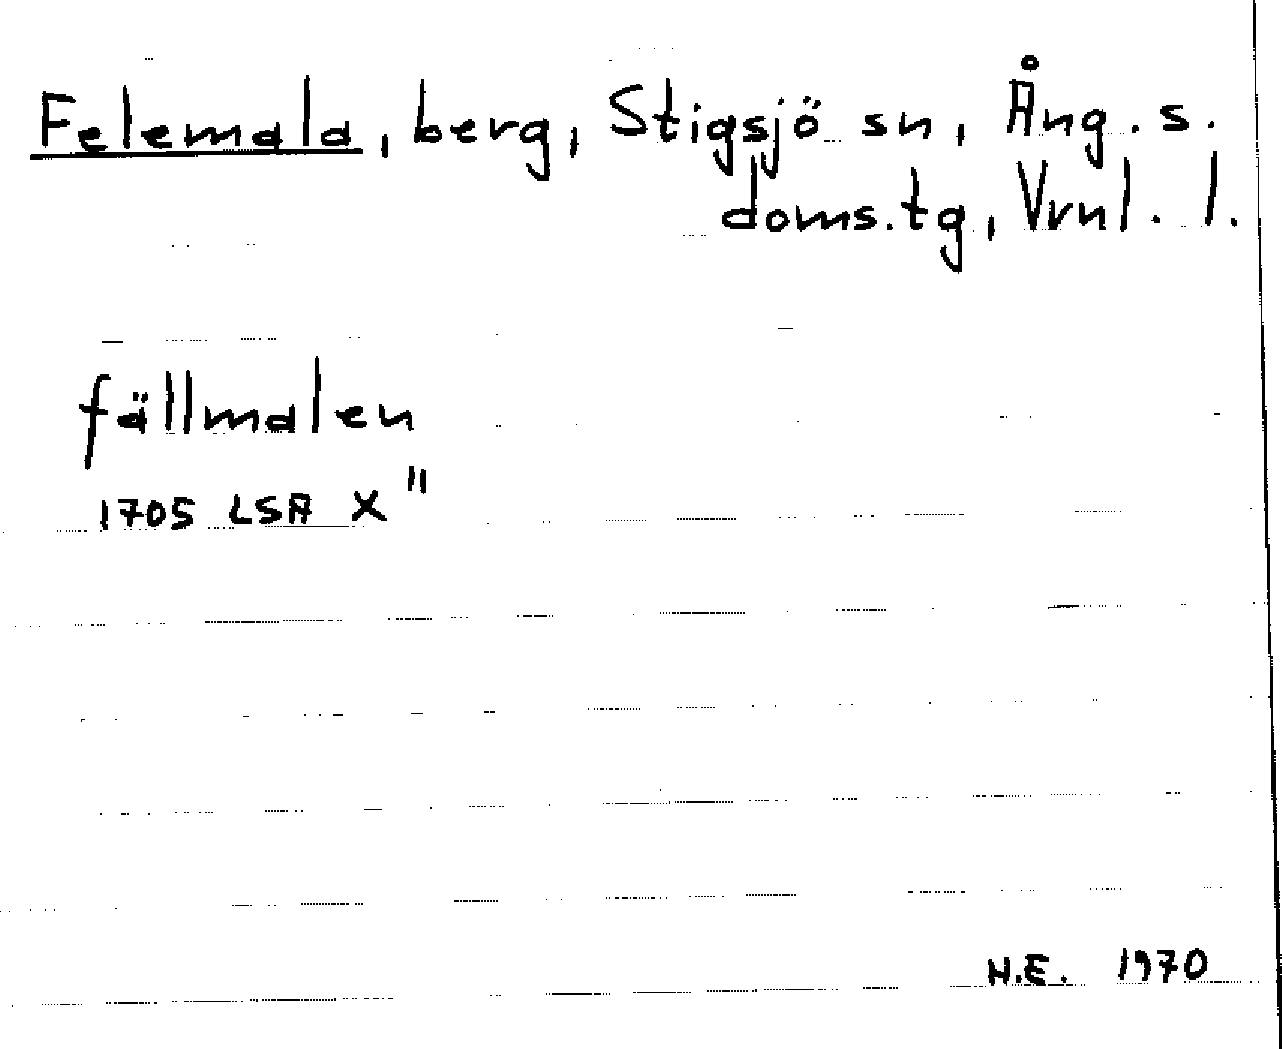 Felemala, berg, Stigsjö sn, Ång. s.
doms.tg, Vrnl. l.
fällmalen
1705 LSA X"
H.E. 1970